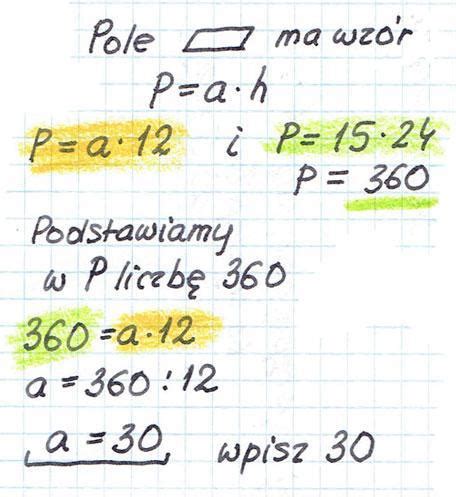 Pole ▱ ma wzór
P = a · h
P = a · 12 i P = 15 · 24
P = 360
Podstawiamy
w P liczbę 360
360 = a · 12
a = 360 : 12
a = 30 wpisz 30